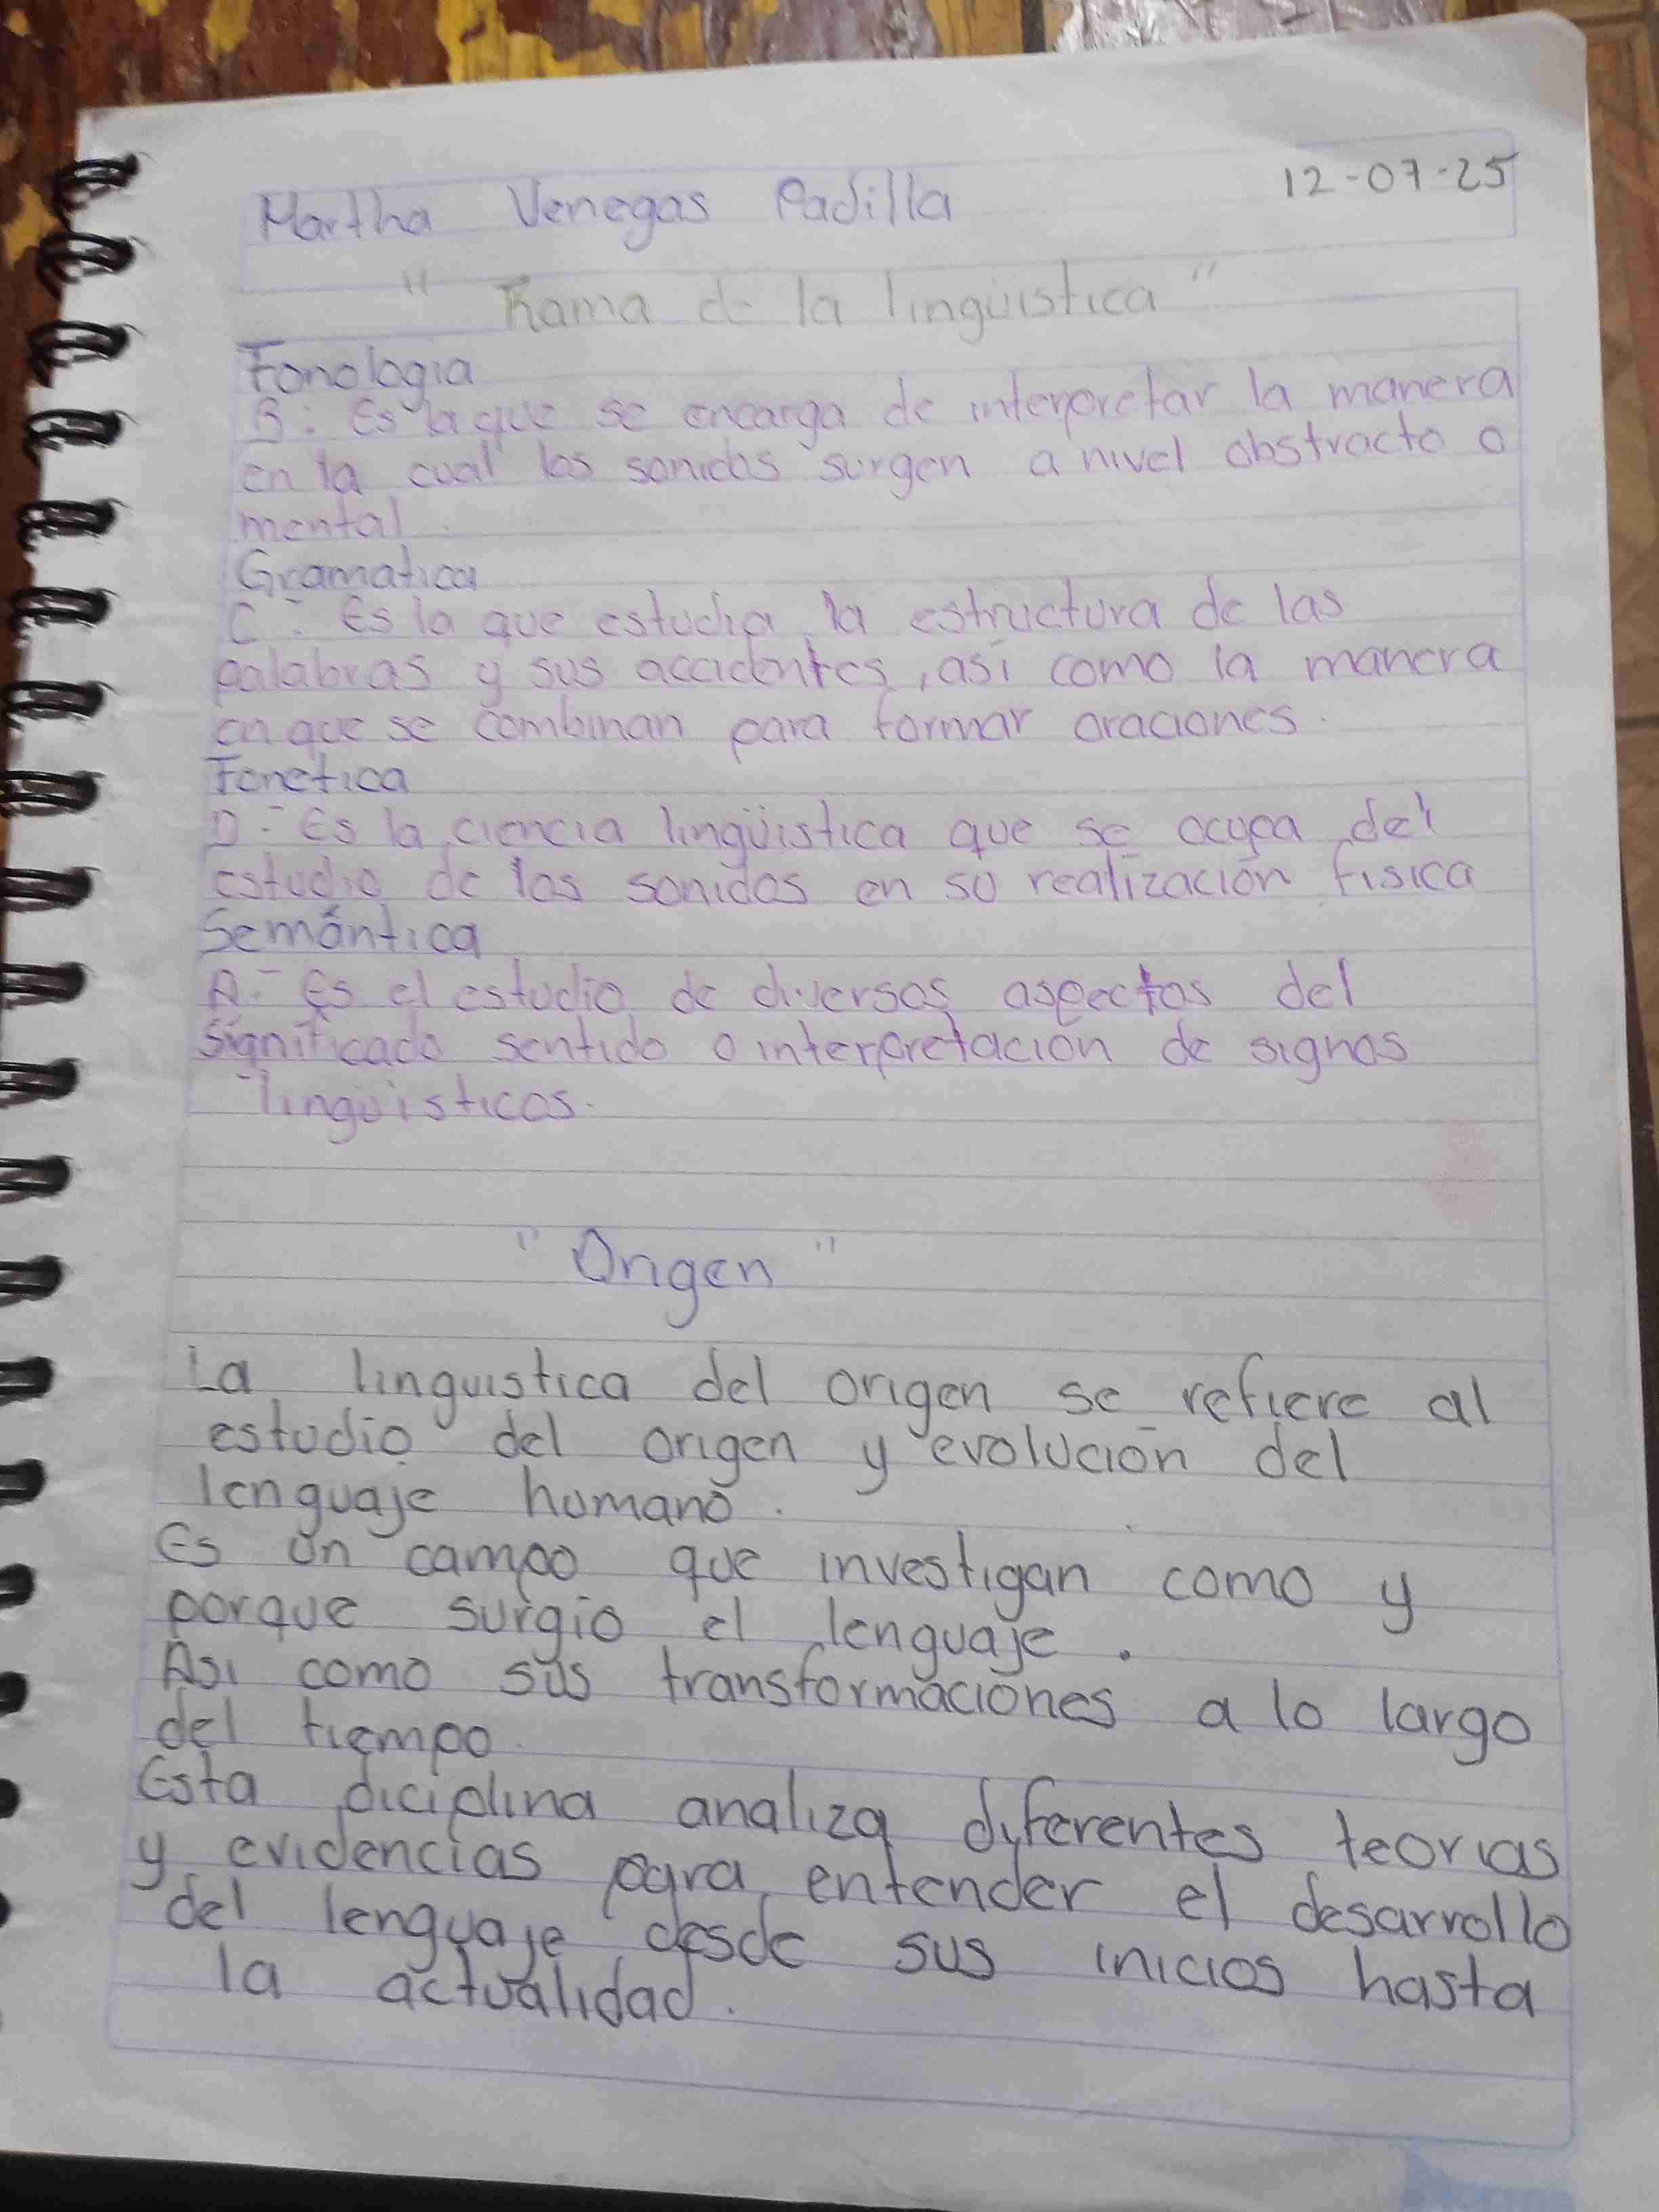 12-07-25
Martha Venegas Padilla
" Rama de la lingüistica "
Fonologia
B: Es la que se encarga de interpretar la manera
en la cual los sonidos surgen a nivel obstracto o
mental.
Gramatica
C: Es la que estudia la estructura de las
palabras y sus accidentes, asi como la manera
en que se combinan para formar oraciones.
Fonetica
D: Es la ciencia lingüistica que se ocupa del
estudio de los sonidos en su realización fisica
Semántica
A: Es el estudio de diversos aspectos del
significado sentido o interpretación de signos
lingüisticos.
" Origen "
La linguistica del origen se refiere al
estudio del origen y evolución del
lenguaje humano.
Es un campo que investigan como y
porque surgio el lenguaje.
Asi como sus transformaciones a lo largo
del tiempo.
Esta diciplina analiza diferentes teorias
y evidencias para entender el desarrollo
del lenguaje desde sus inicios hasta
la actualidad.